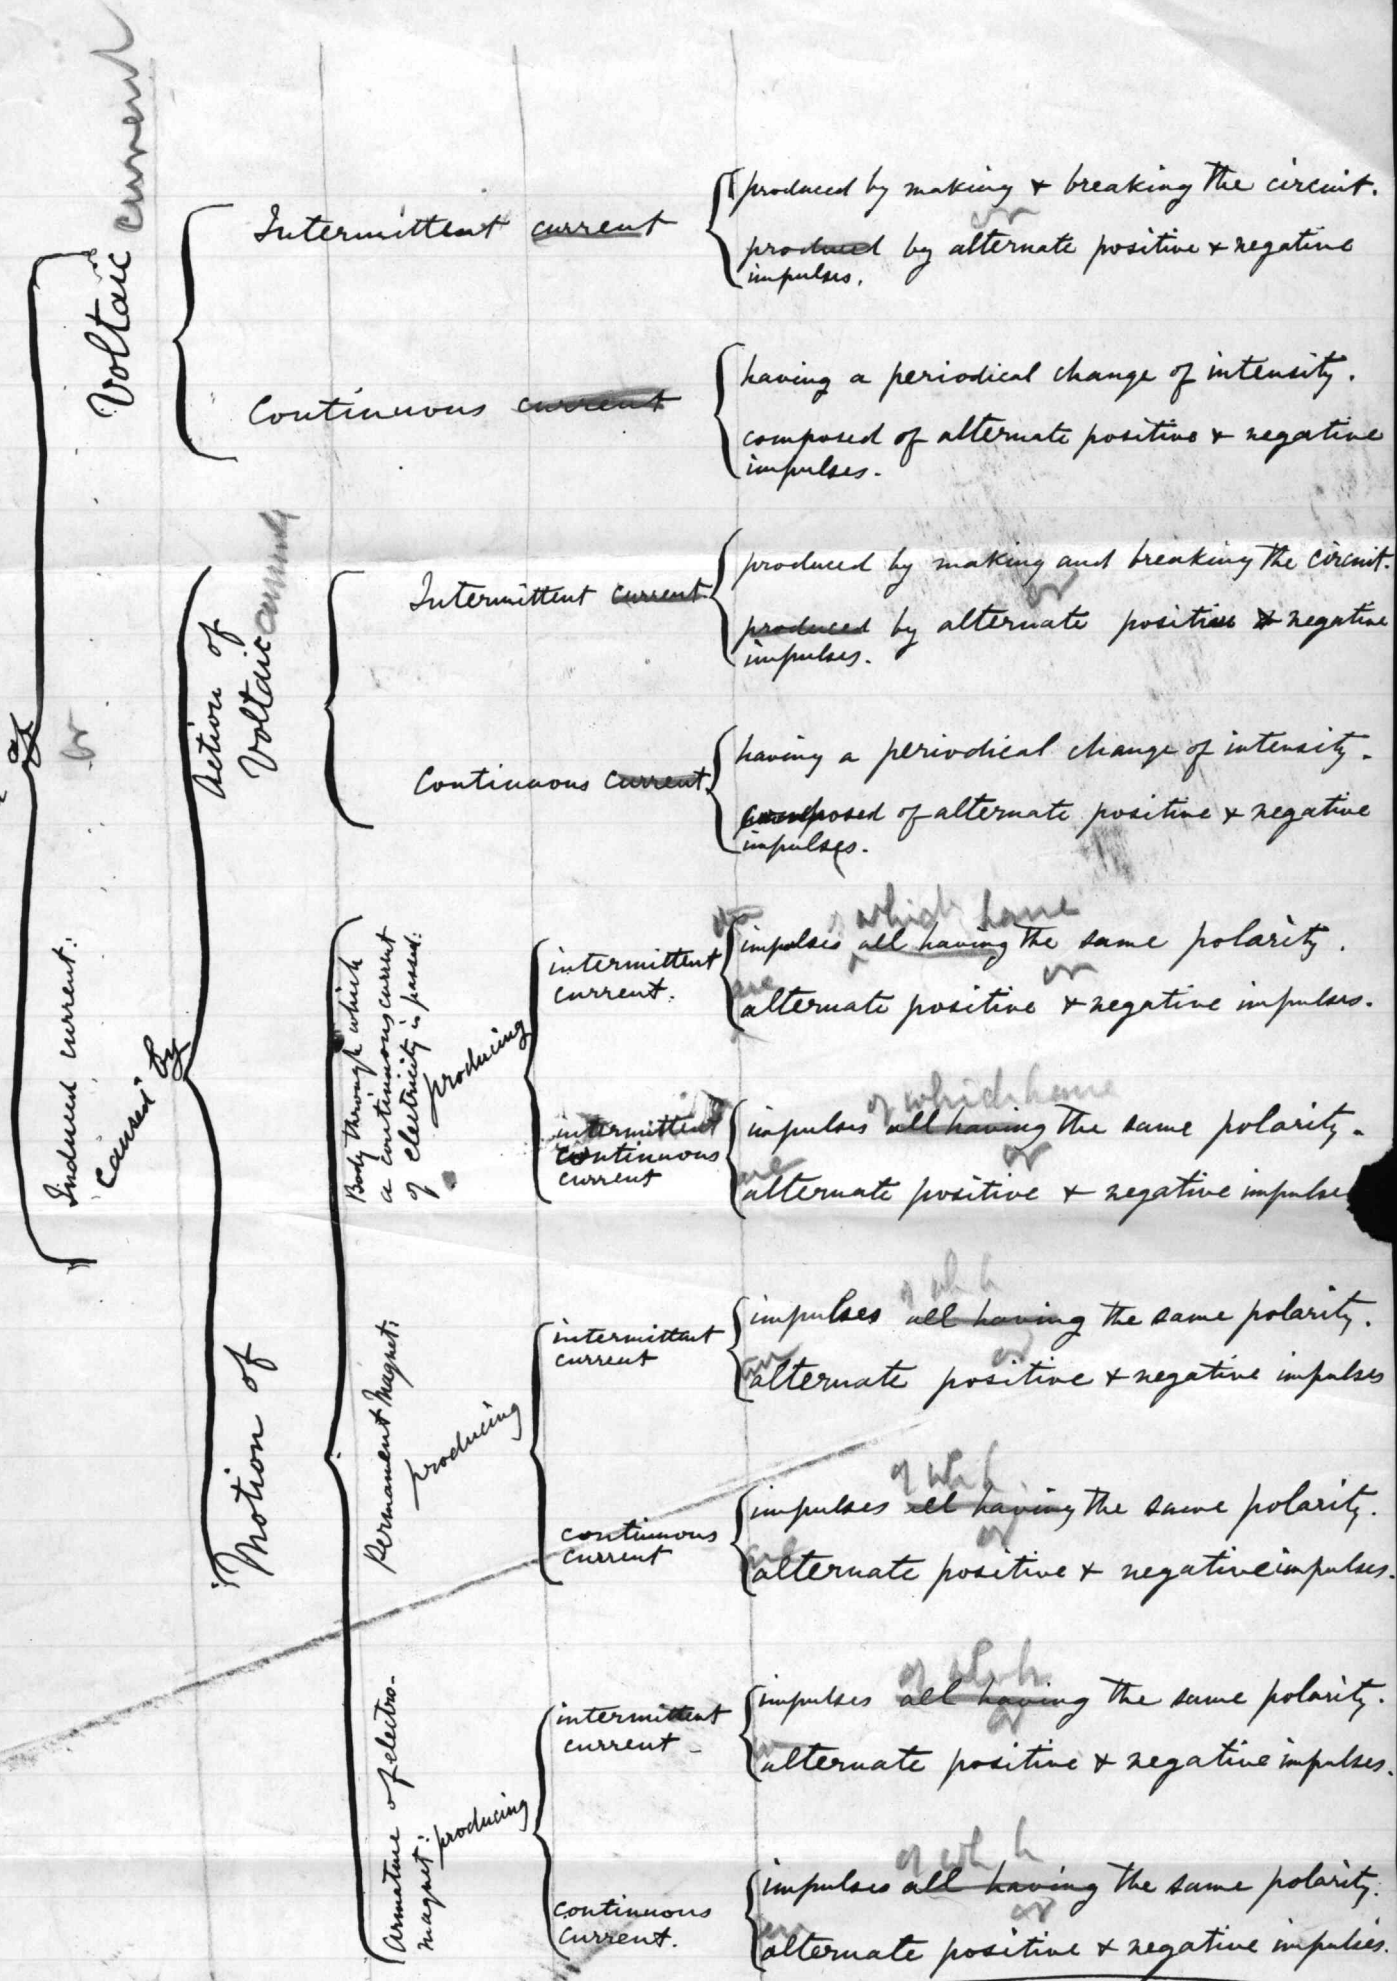 Voltaic current
Intermittent current
produced by making & breaking the circuit.
or
produced by alternate positive & negative
impulses.
Continuous current
having a periodical change of intensity.
composed of alternate positive & negative
impulses.
of
or
Induced current:
caused by
Action of
Voltaic current
Intermittent current
produced by making and breaking the circuit.
or
produced by alternate positive & negative
impulses.
Continuous current
having a periodical change of intensity.
composed of alternate positive & negative
impulses.
Motion of
Body through which
a continuous current
of electricity is passed:
producing
intermittent
current.
which have
impulses all having the same polarity.
or
are
alternate positive & negative impulses.
intermittent
continuous
current
of which have
impulses all having the same polarity.
or
are
alternate positive & negative impulse
Permanent Magnet:
producing
intermittent
current
of wh h
impulses all having the same polarity.
or
alternate positive & negative impulses
continuous
current
of wh h
impulses all having the same polarity.
or
alternate positive & negative impulses.
Armature of electro-
magnet:
producing
intermittent
current
of wh h
impulses all having the same polarity.
or
alternate positive & negative impulses.
continuous
current.
of wh h
impulses all having the same polarity.
or
alternate positive & negative impulses.